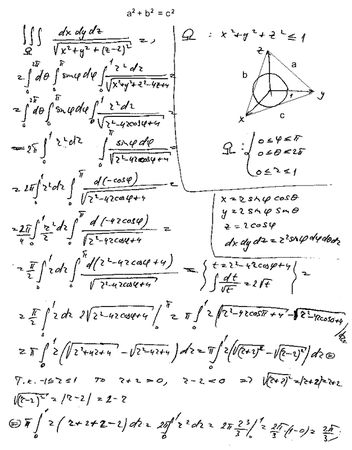 a² + b² = c²
∭_Ω dx dy dz / √(x²+y²+(z-2)²) =,
Ω : x²+y²+z² ≤ 1
= ∫₀^{2π} dθ ∫₀^π sinφ dφ ∫₀¹ r² dr / √(x²+y²+z²-4z+4)
z
a
b
y
x
c
1
= ∫₀^{2π} dθ ∫₀^π sinφ dφ ∫₀¹ r² dr / √(r²-4r cosφ+4) =
= 2π ∫₀¹ r² dr ∫₀^π sinφ dφ / √(r²-4r cosφ+4) =
Ω : { 0 ≤ φ ≤ π
0 ≤ θ ≤ 2π
0 ≤ r ≤ 1
= 2π ∫₀¹ r² dr ∫₀^π d(-cosφ) / √(r²-4r cosφ+4) =
x = r sinφ cosθ
y = r sinφ sinθ
z = r cosφ
dx dy dz = r² sinφ dφ dθ dr
= 2π/4 ∫₀¹ r²/r dr ∫₀^π d(-4r cosφ) / √(r²-4r cosφ+4) =
= π/2 ∫₀¹ r dr ∫₀^π d(r²-4r cosφ+4) / √(r²-4r cosφ+4) = { t = r²-4r cosφ+4
∫ dt/√t = 2√t } =
= π/2 ∫₀¹ r dr 2√(r²-4r cosφ+4) |₀^π = π ∫₀¹ r (√(r²-4r cosπ+4) - √(r²-4r cos0+4)) dr
= π ∫₀¹ r (√(r²+4r+4) - √(r²-4r+4)) dr = π ∫₀¹ r (√(r+2)² - √(r-2)²) dr ⊜
Т.к. 0≤r≤1 то r+2 > 0, r-2 < 0 ⇒ √(r+2)² = |r+2| = r+2
√(r-2)² = |r-2| = 2-r
⊜ π ∫₀¹ r (r+2+r-2) dr = 2π ∫₀¹ r² dr = 2π r³/3 |₀¹ = 2π/3 (1-0) = 2π/3